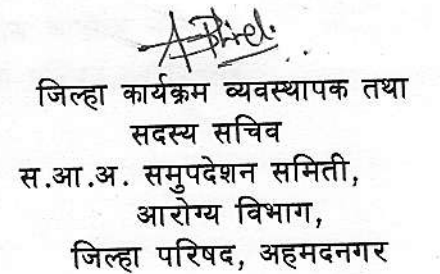 जिल्हा कार्यक्रम व्यवस्थापक तथा
सदस्य सचिव
स.आ.अ. समुपदेशन समिती,
आरोग्य विभाग,
जिल्हा परिषद, अहमदनगर